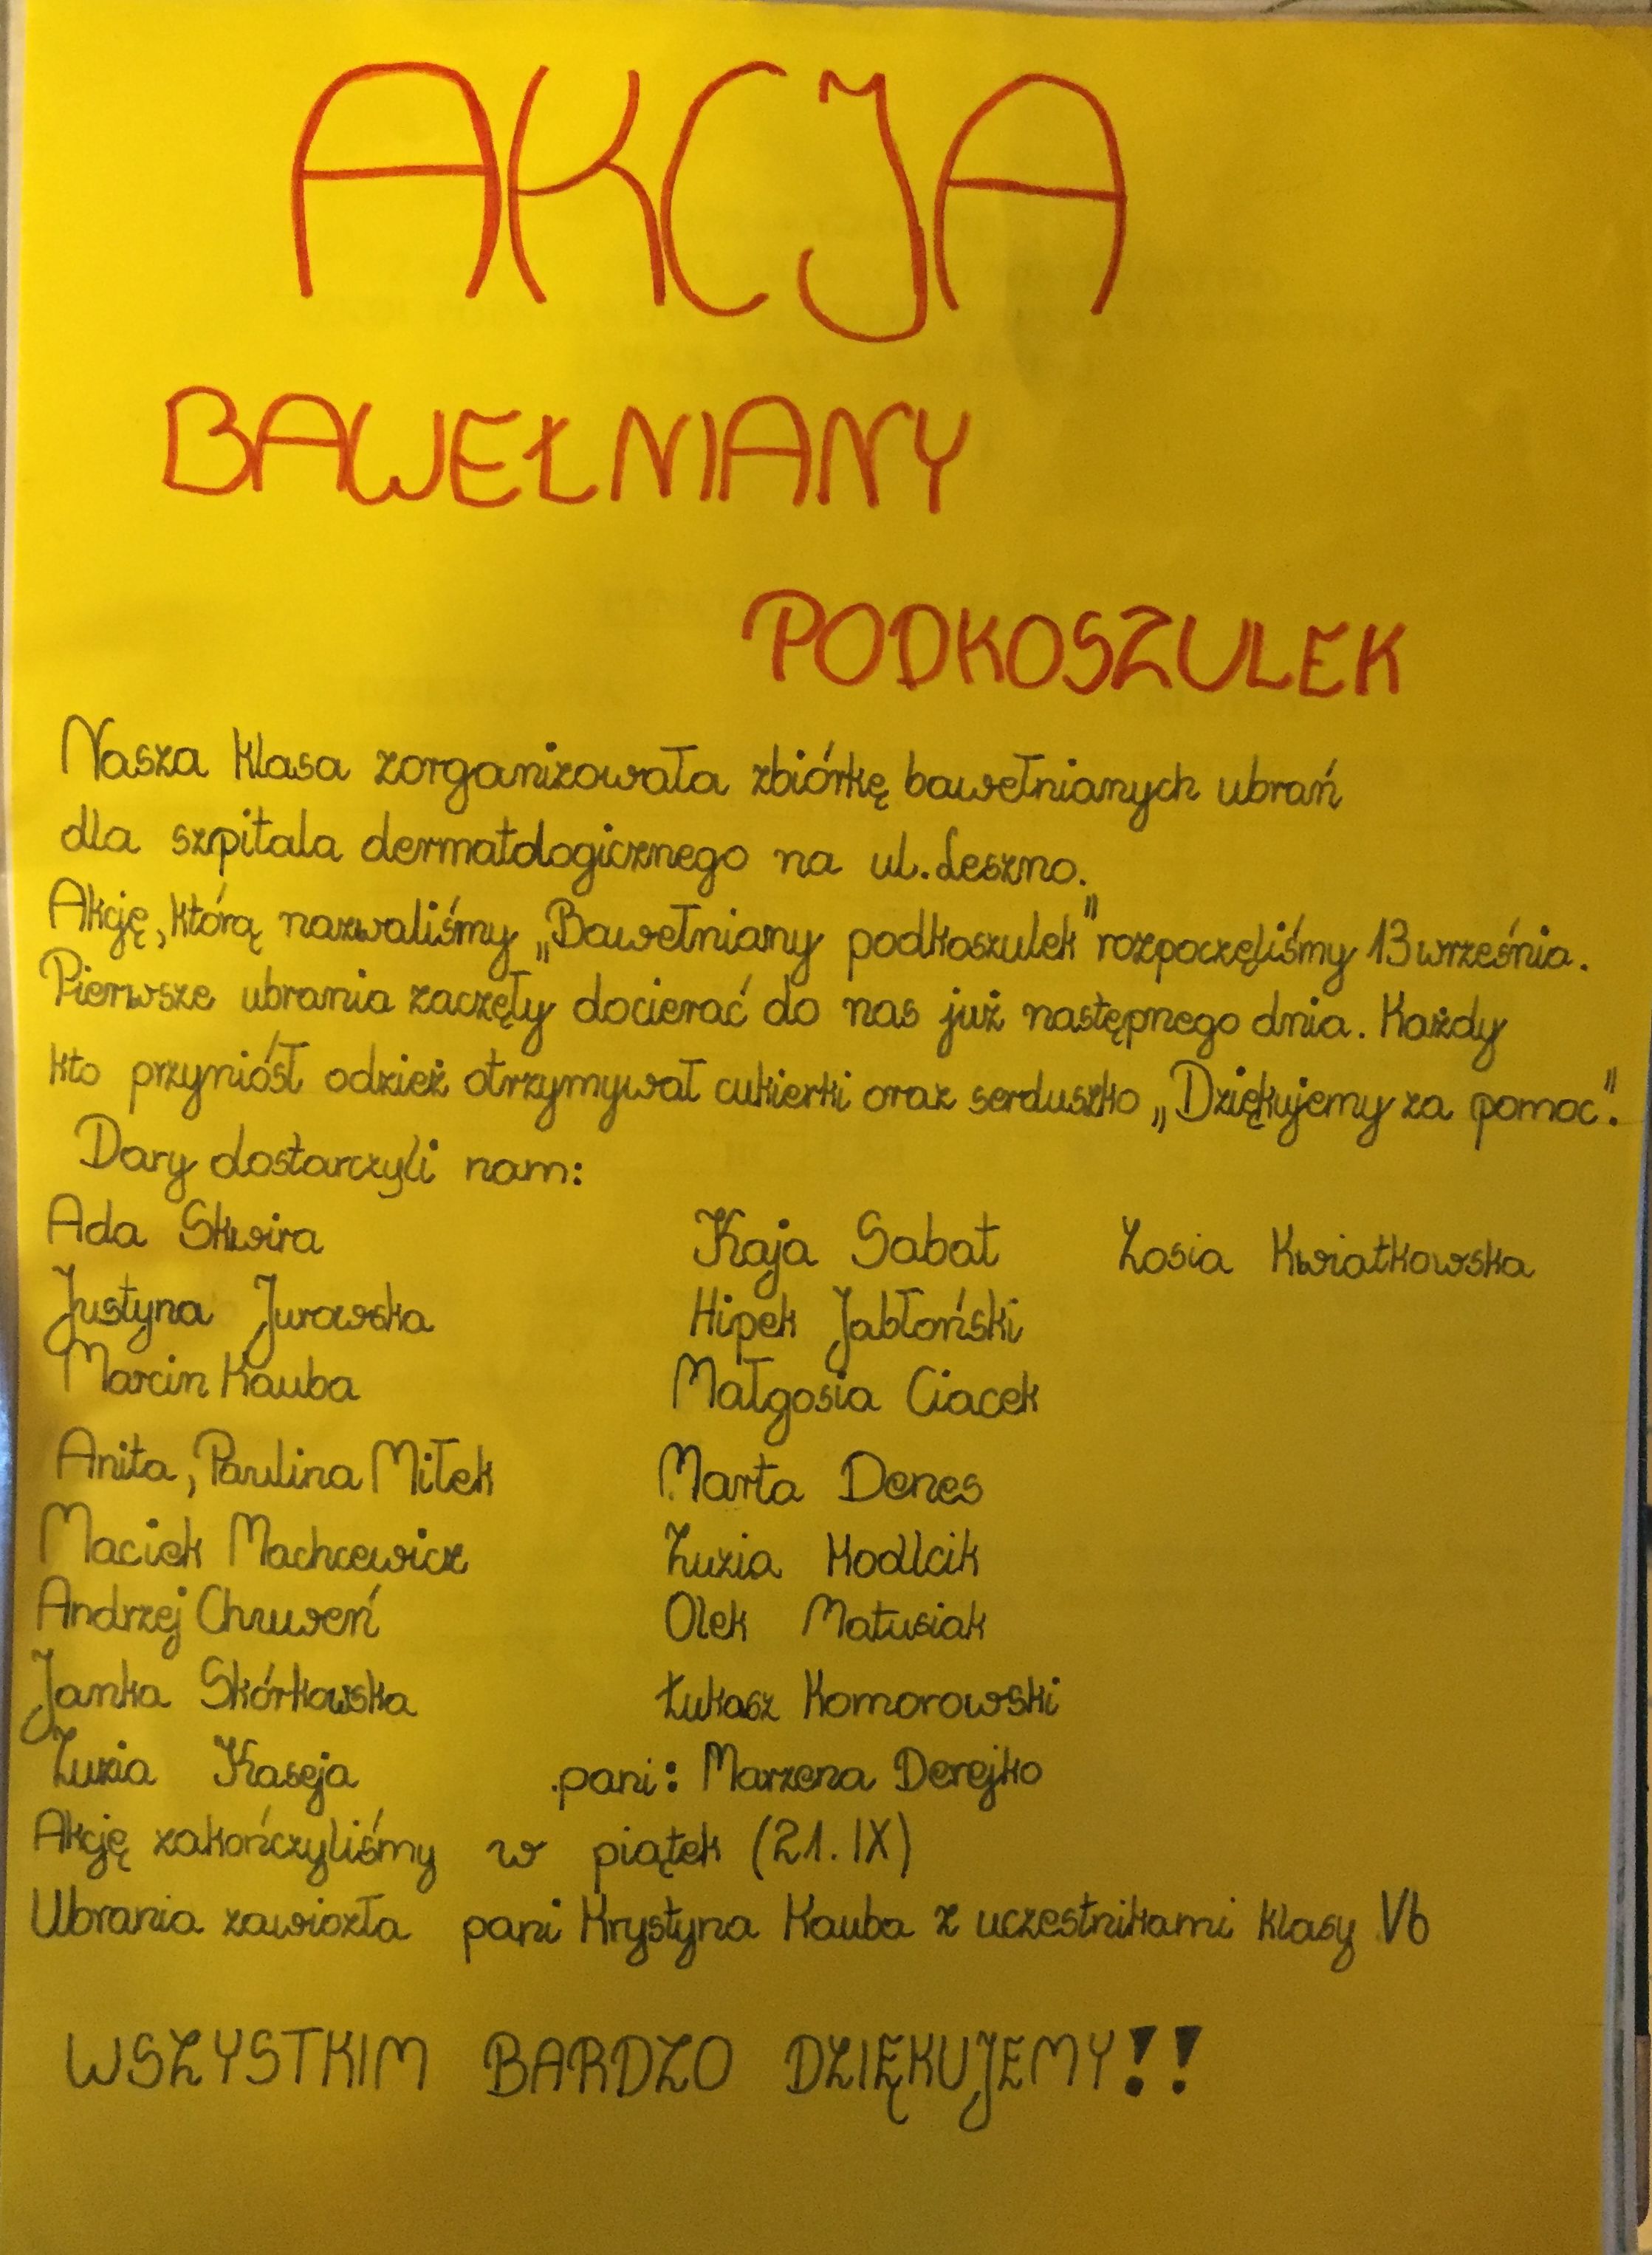 AKCJA
BAWEŁNIANY
PODKOSZULEK
Nasza klasa zorganizowała zbiórkę bawełnianych ubrań
dla szpitala dermatologicznego na ul. Leszno.
Akcję, którą nazwaliśmy „Bawełniany podkoszulek" rozpoczęliśmy 13 września.
Pierwsze ubrania zaczęły docierać do nas już następnego dnia. Każdy
kto przyniósł odzież otrzymywał cukierki oraz serduszko „Dziękujemy za pomoc".
Dary dostarczyli nam:
Ada Skwira Kaja Sabat Zosia Kwiatkowska
Justyna Jurawska Hipek Jabłoński
Marcin Kauba Małgosia Ciacek
Anita, Paulina Miłek Marta Denes
Maciek Machcewicz Zuzia Kodlcik
Andrzej Olek Matusiak
Janka Skórkowska Łukasz Komorowski
Zuzia Kaseja pani: Marzena Derejko
Akcję zakończyliśmy w piątek (21. IX)
Ubrania zawiozła pani Krystyna Kauba z uczestnikami klasy Vb
WSZYSTKIM BARDZO DZIĘKUJEMY!!